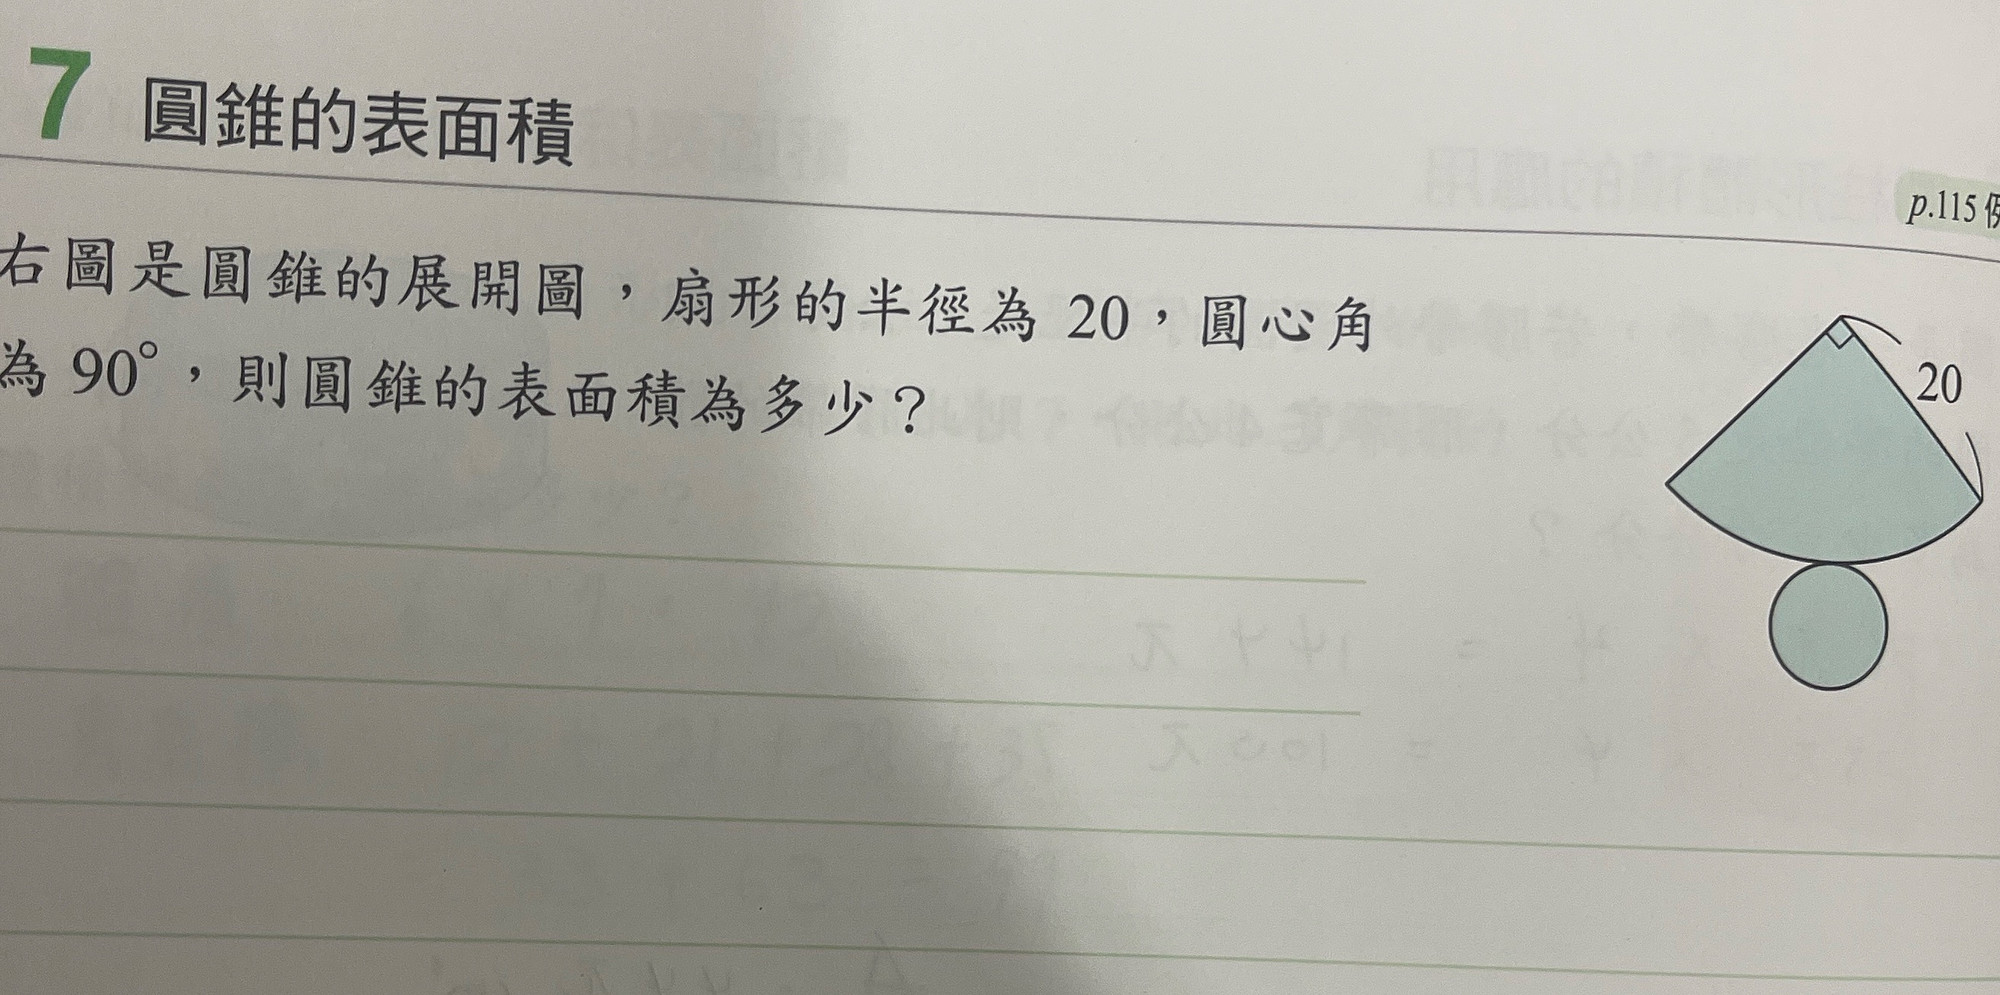 7 圓錐的表面積
p.115
右圖是圓錐的展開圖，扇形的半徑為 20，圓心角
為 90°，則圓錐的表面積為多少？
20